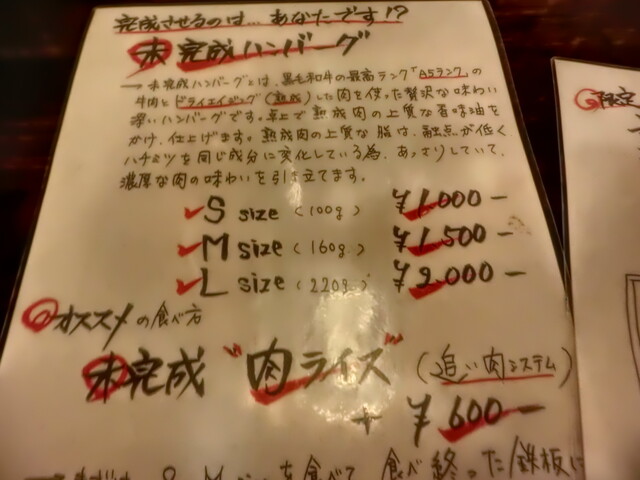 完成させるのは…あなたです!?
未完成ハンバーグ
→未完成ハンバーグとは、黒毛和牛の最高ランク「A5ランク」の
牛肉とドライエイジング(熟成)した肉を使った贅沢な味わい
深いハンバーグです。卓上で熟成肉の上質な香味油を
かけ、仕上げます。熟成肉の上質な脂は、融点が低く
ハチミツを同じ成分に変化している為、あっさりしていて、
濃厚な肉の味わいを引き立てます。
S size (100g) ¥1.000-
M size (160g) ¥1.500-
L size (220g) ¥2.000-
オススメの食べ方
未完成"肉ライス"(追い肉システム)
+¥600-
を食べて、食べ終った鉄板に
限定